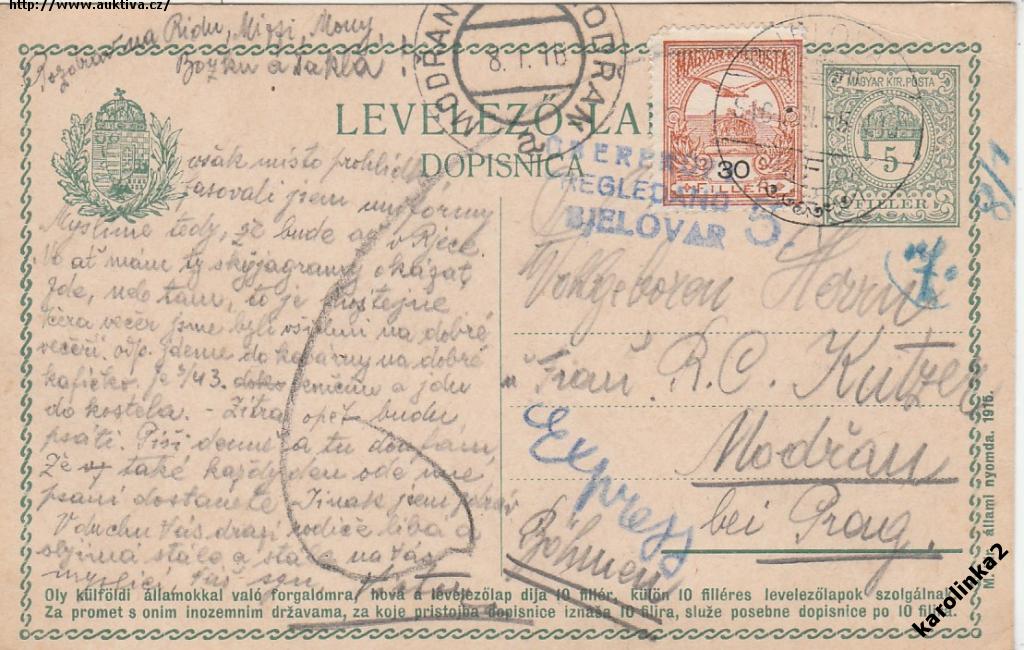 http://www.auktiva.cz/
Pozdrav na Ridu, Mizi, Mony,
Božku a Takla!
MODŘAN MODŘAN
8. I. 16
LEVELEZŐ-LA
DOPISNICA
MAGYAR KIR. POSTA
30
FILLÉR
MAGYAR KIR. POSTA
5
FILLER
8/1
PREGLEDANO
BJELOVAR 5.
7.
však místo prohlídky
fasovali jsem uniformy
Myslíme tedy, že bude as v Rjece.
No ať mám ty okázat
Jde, nebo tam, to je prostejné
včera večer jsme byli všichni na dobré
večeři. odp. jdeme do kavárny na dobré
kafíčko. Je 3/4 3. končím a jdu
do kostela. - Zítra opět budu
psáti. Piši denně a tu doufám,
že též také každý den ode mne
psaní dostanete. Jinak jsem zdráv
V duchu Vás drazí rodiče líbá a
objímá stále a stále na Vás
myslící Váš syn
Wohlgeboren Herrn
Frau R. C. Kutzer
Modřan
bei Prag.
Böhmen
Express
Oly külföldi államokkal való forgalomra, hová a levelezőlap díja 10 fillér, külön 10 filléres levelezőlapok szolgálnak
Za promet s onim inozemnim državama, za koje pristojba dopisnice iznaša 10 filira, služe posebne dopisnice po 10 filira.
M. kir. állami nyomda. 1915.
karolinka2